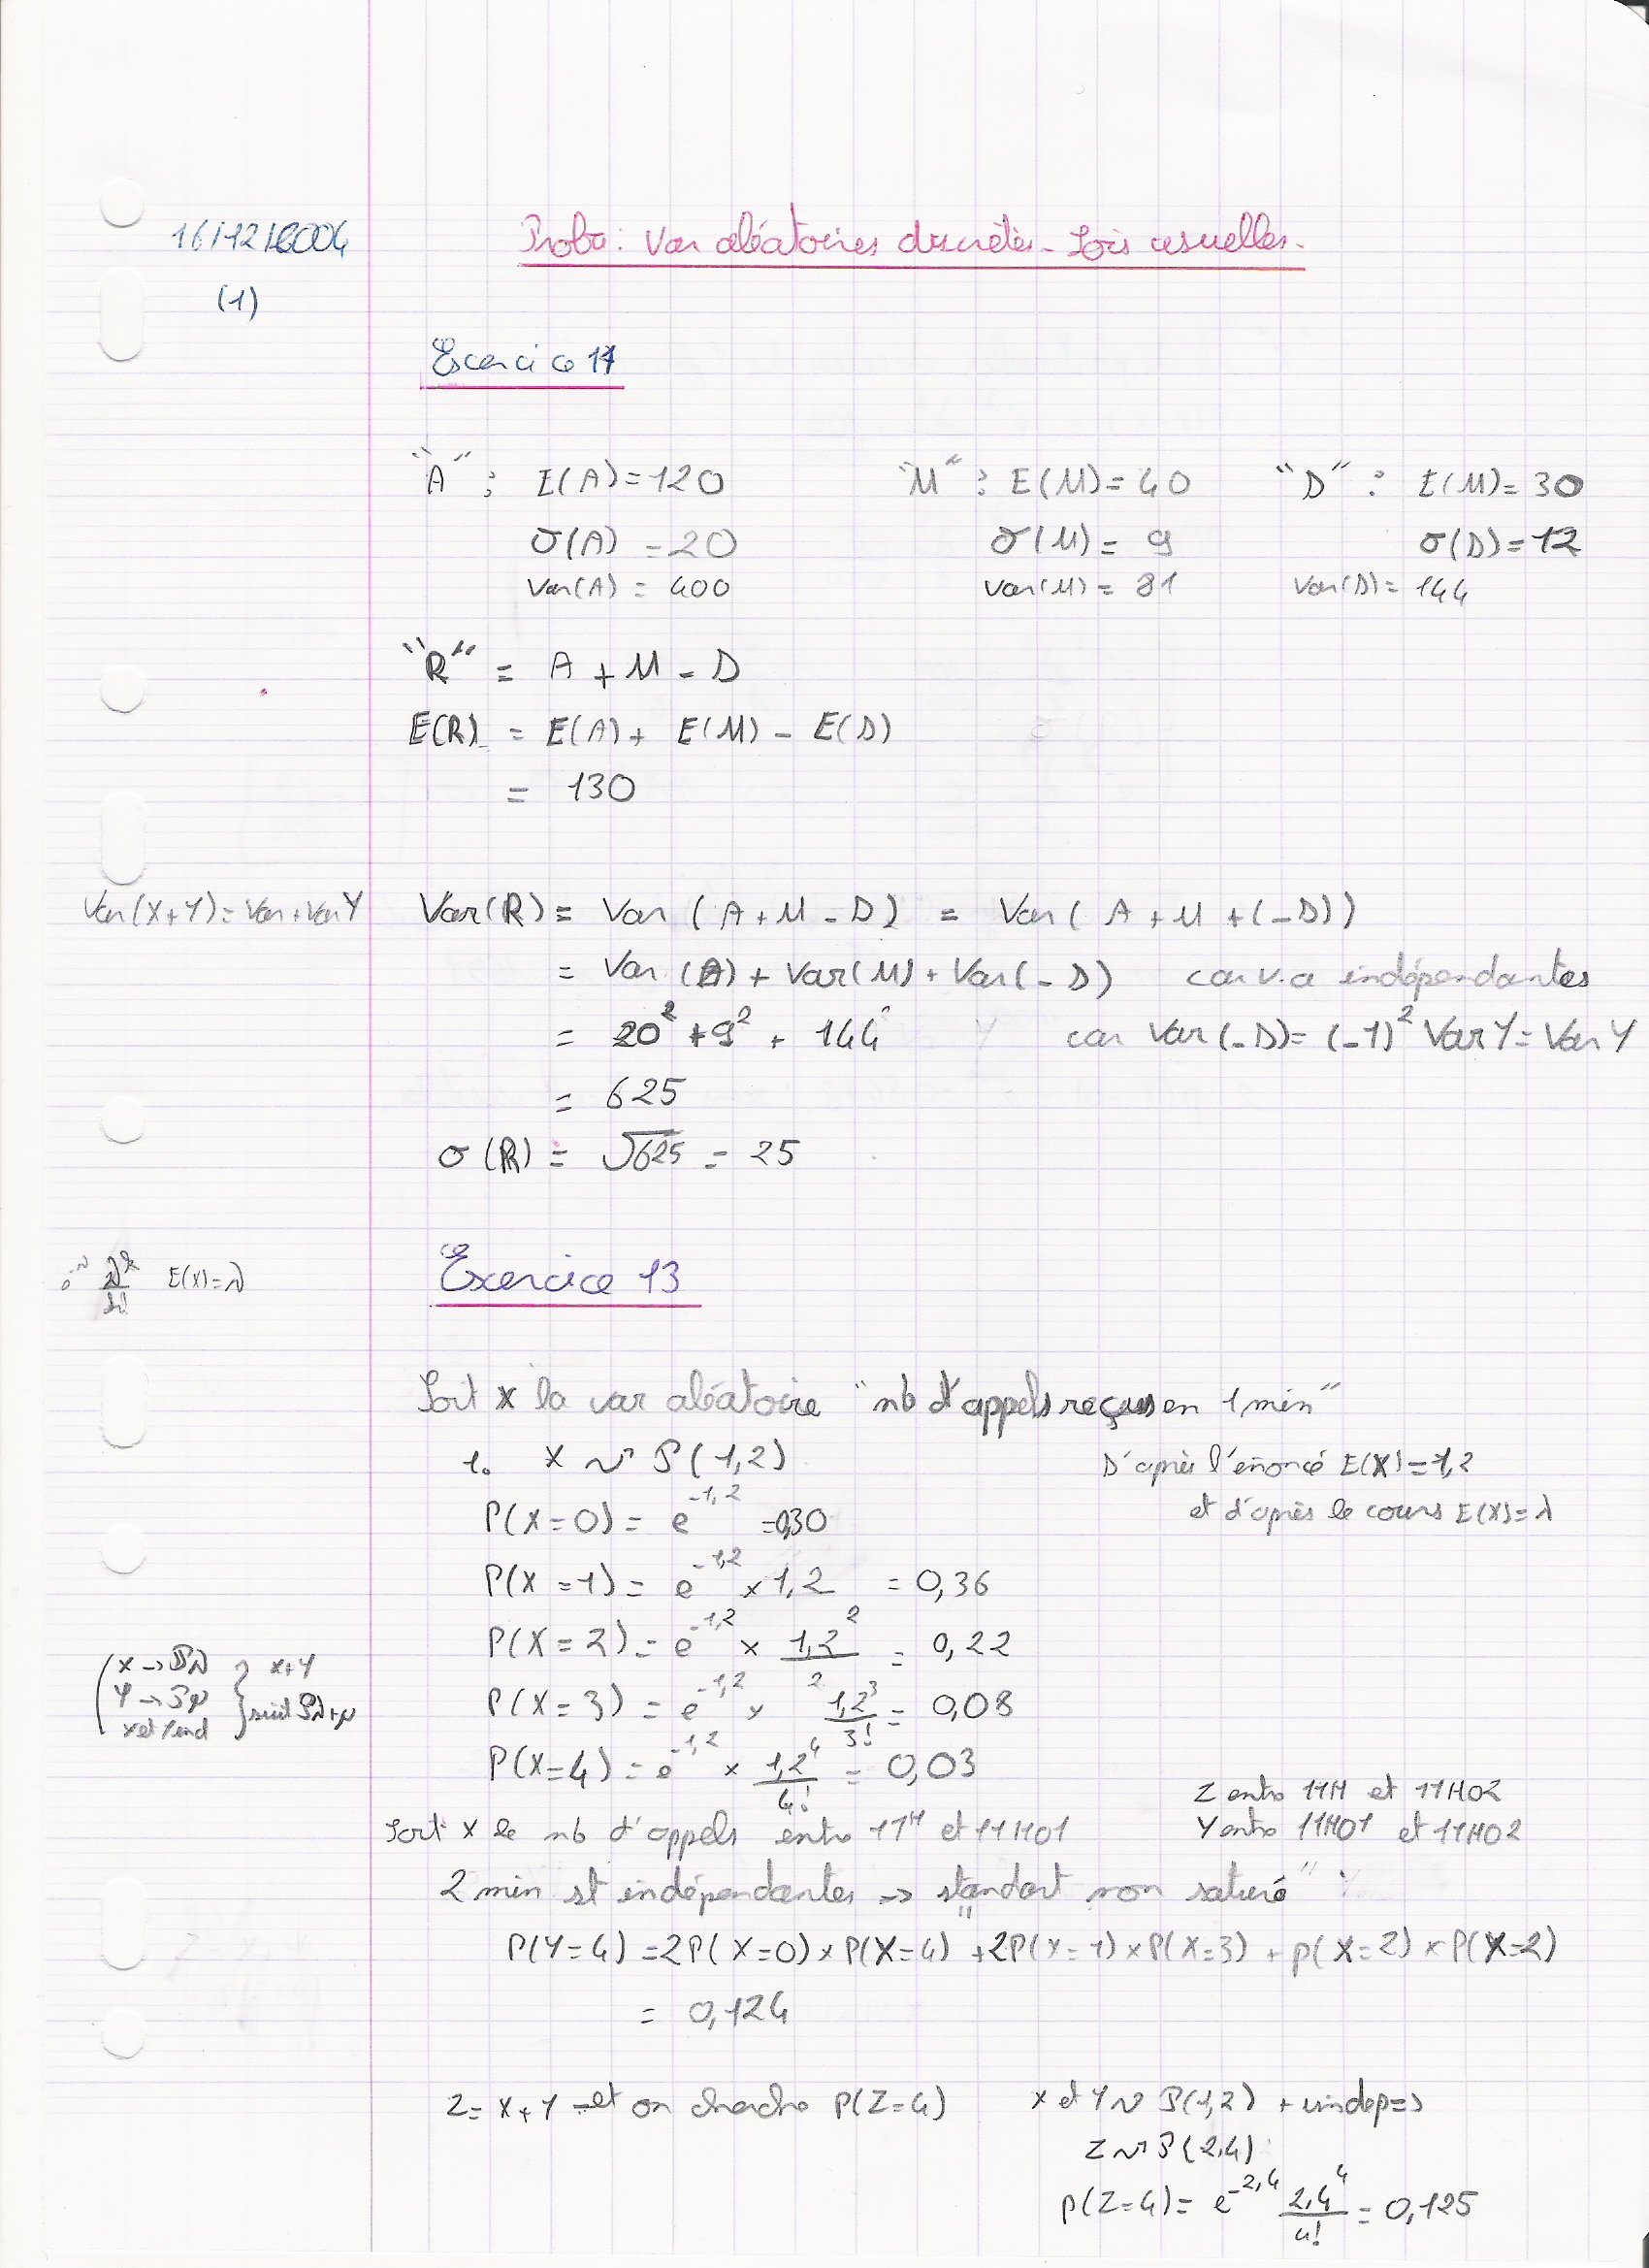 16/12/2004
Proba : Var aléatoires discrètes - Lois usuelles.
(1)
Exercice 11
"A" : E(A)=120 "M" : E(M)=40 "D" : E(M)=30
σ(A) = 20 σ(M) = 9 σ(D)=12
Var(A) = 400 Var(M) = 81 Var(D)= 144
"R" = A + M - D
E(R) = E(A) + E(M) - E(D)
= 130
Var(X+Y)=Var+VarY
Var(R) = Var (A+M-D) = Var( A + M +(-D))
= Var (A) + Var(M) + Var(-D) car v.a indépendantes
= 20² + 9² + 144 car Var(-D)= (-1)² VarY = VarY
= 625
σ(R) = √625 = 25
e^-λ λ^k/k! E(X)=λ
Exercice 13
Soit X la var aléatoire "nb d'appels reçus en 1 min"
1. X ~ P(1,2) D'après l'énoncé E(X)=1,2
P(X=0) = e^-1,2 =0,30 et d'après le cours E(X)=λ
P(X=1) = e^-1,2 × 1,2 = 0,36
P(X=2) = e^-1,2 × 1,2²/2 = 0,22
(X → Pλ } X+Y
Y → Pμ } suit Pλ+μ
X et Y ind
P(X=3) = e^-1,2 × 1,2³/3! = 0,08
P(X=4) = e^-1,2 × 1,2⁴/4! = 0,03
Z entre 11H et 11H02
Soit X le nb d'appels entre 11H et 11H01 Y entre 11H01 et 11H02
2 min st indépendantes → "standart non saturé"
P(Y=4) =2P(X=0)×P(X=4) +2P(X=1)×P(X=3) + P(X=2)×P(X=2)
= 0,124
Z= X+Y et on cherche P(Z=4) X et Y ~ P(1,2) + indep=>
Z ~ P(2,4)
P(Z=4)= e^-2,4 2,4⁴/4! = 0,125